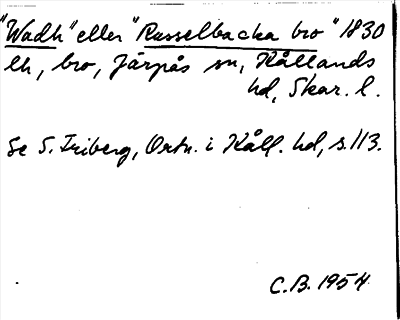 "Wadh" eller "Russelbacka bro" 1830
lh, bro, Järpås sn, Kållands
hd, Skar. l.
Se S. Friberg, Ortn. i Kåll. hd, s. 113.
C.B. 1954